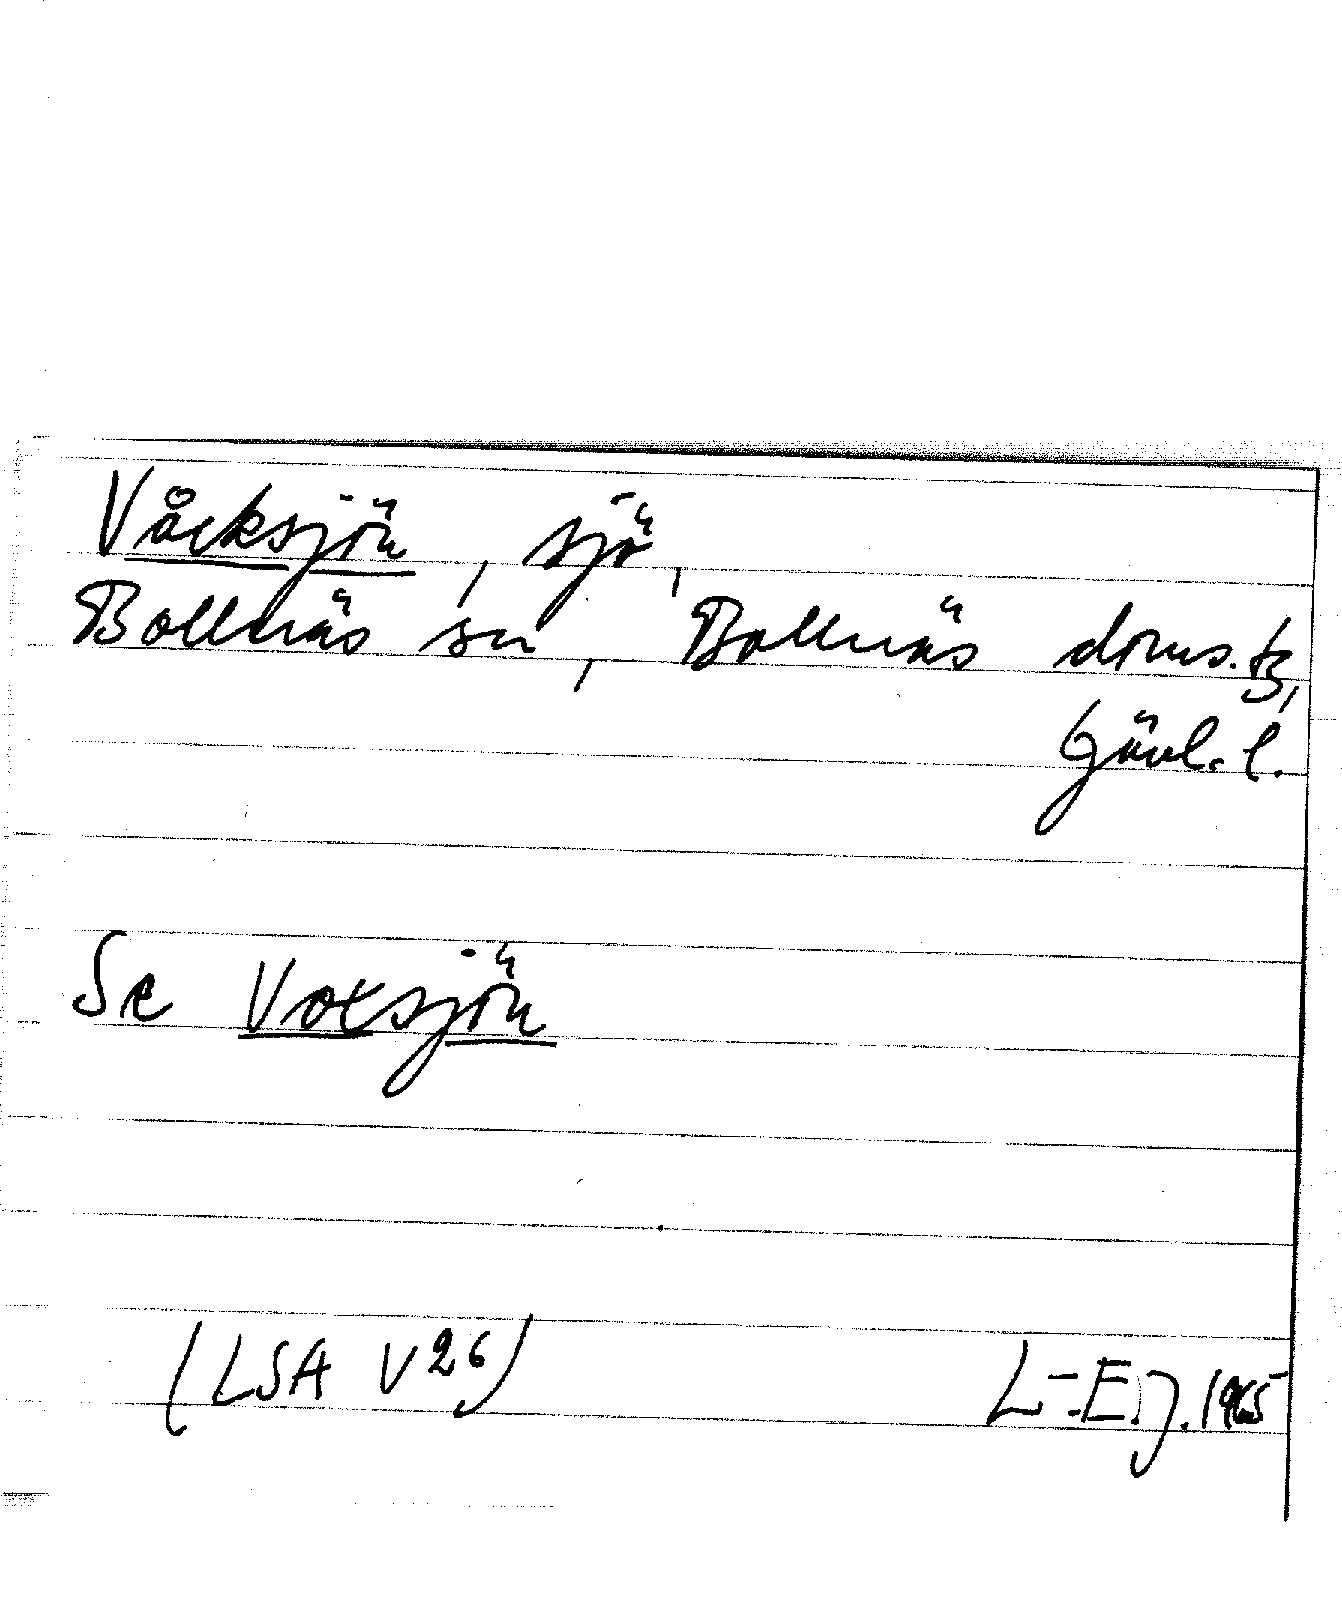 Våcksjön, sjö,
Bollnäs sn, Bollnäs doms. tg,
Gävl. l.
Se Voxsjön
(LSA V 26)
L-E. J. 1965